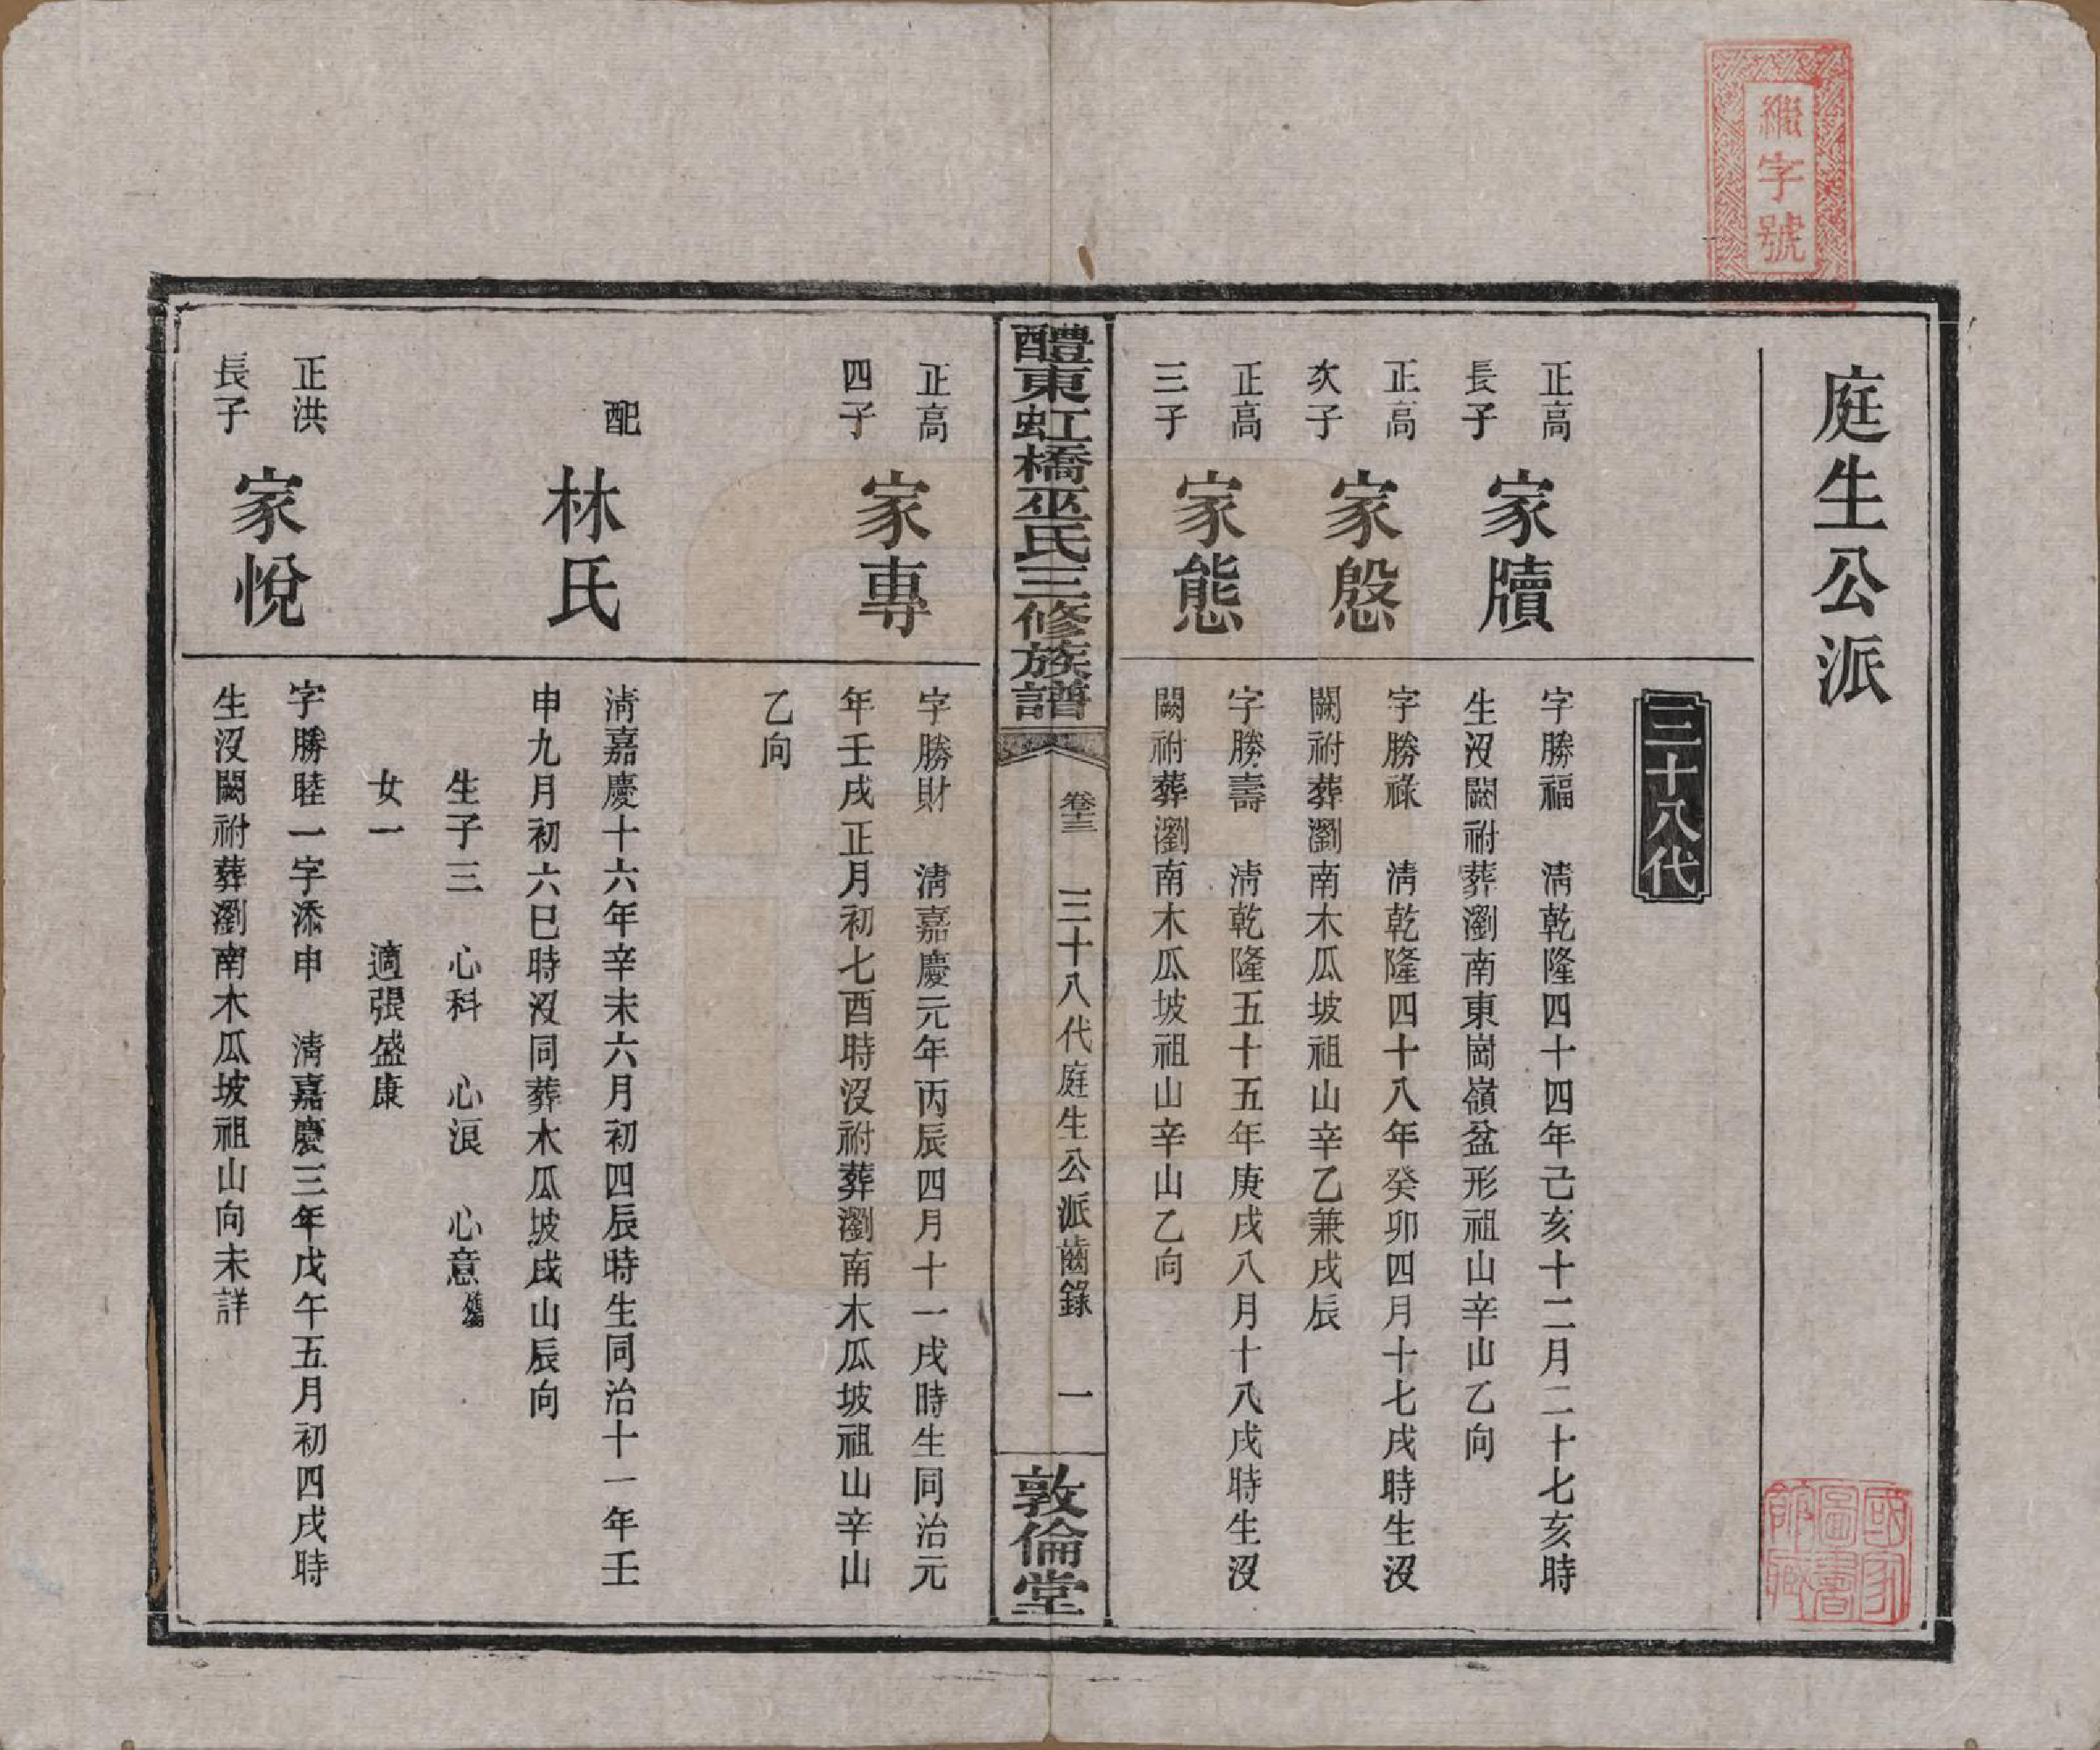 繼字號
庭生公派
三十八代
正高
長子
家牘
字勝福　清乾隆四十四年己亥十二月二十七亥時
生沒闕祔葬瀏南東崗嶺盆形祖山辛山乙向
正高
次子
家慇
字勝祿　清乾隆四十八年癸卯四月十七戌時生沒
闕祔葬瀏南木瓜坡祖山辛乙兼戌辰
正高
三子
家態
字勝壽　清乾隆五十五年庚戌八月十八戌時生沒
闕祔葬瀏南木瓜坡祖山辛山乙向
國家圖書館藏
醴東虹橋巫氏三修族譜
卷十三　三十八代庭生公派齒錄　一
敦倫堂
正高
四子
家專
字勝財　清嘉慶元年丙辰四月十一戌時生同治元
年壬戌正月初七酉時沒祔葬瀏南木瓜坡祖山辛山
乙向
配
林氏
清嘉慶十六年辛未六月初四辰時生同治十一年壬
申九月初六巳時沒同葬木瓜坡戌山辰向
生子三　心科　心浪　心意
女一　適張盛康
正洪
長子
家悅
字勝睦一字添申　清嘉慶三年戊午五月初四戌時
生沒闕祔葬瀏南木瓜坡祖山向未詳